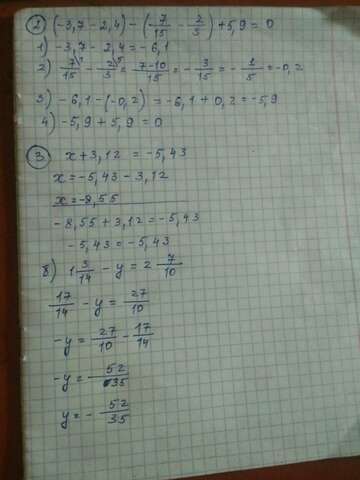 2) (-3,7 - 2,4) - (7/15 - 2/3) + 5,9 = 0
1) -3,7 - 2,4 = -6,1
2) 7/15 - 2/3 = 7-10/15 = - 3/15 = - 1/5 = -0,2
3) -6,1 - (-0,2) = -6,1 + 0,2 = -5,9
4) -5,9 + 5,9 = 0
3) x + 3,12 = -5,43
x = -5,43 - 3,12
x = -8,55
-8,55 + 3,12 = -5,43
-5,43 = -5,43
8) 1 3/14 - y = 2 7/10
17/14 - y = 27/10
-y = 27/10 - 17/14
-y = 52/35
y = - 52/35